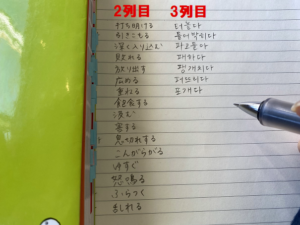 2列目 3列目
打ち明ける 터놓다
引きこもる 틀어박히다
深く入り込む 파고들다
貶める 패하다
放り出す 팽개치다
広める 퍼뜨리다
重ねる 포개다
飽食する
沈む
害する
息切れする
こんがらがる
ゆすぐ
怒鳴る
ふらつく
まじれる